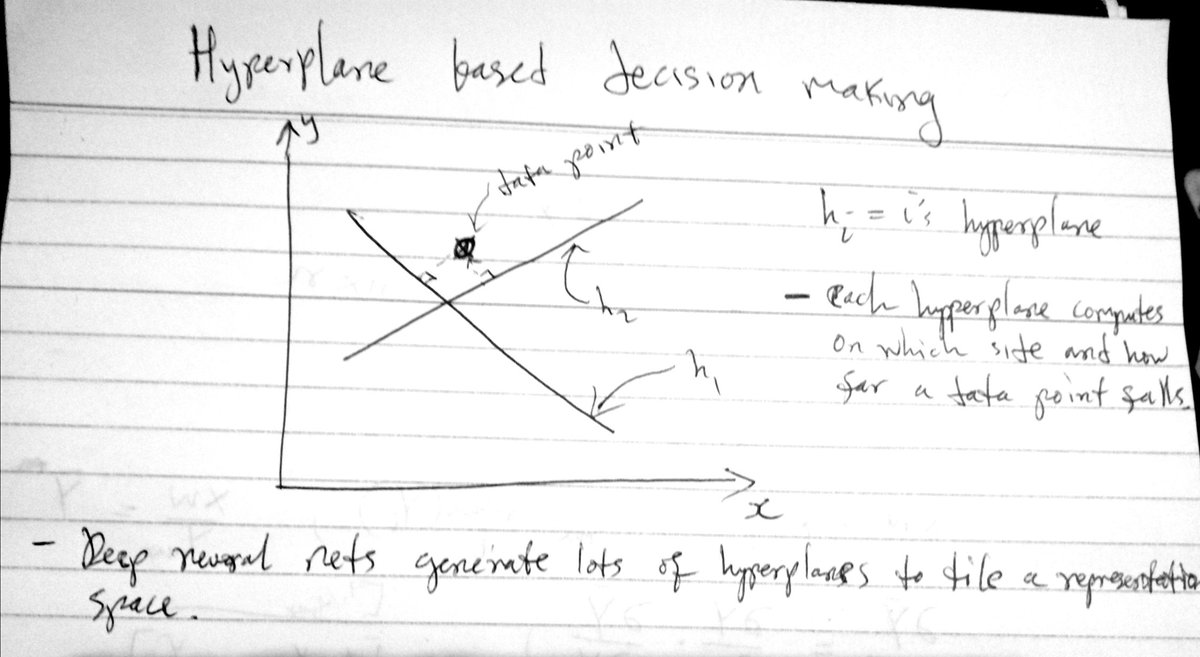 Hyperplane based decision making
y
data point
h₂
h₁
x
hᵢ = i's hyperplane
- Each hyperplane computes
on which side and how
far a data point falls.
- Deep neural nets generate lots of hyperplanes to tile a representation
space.